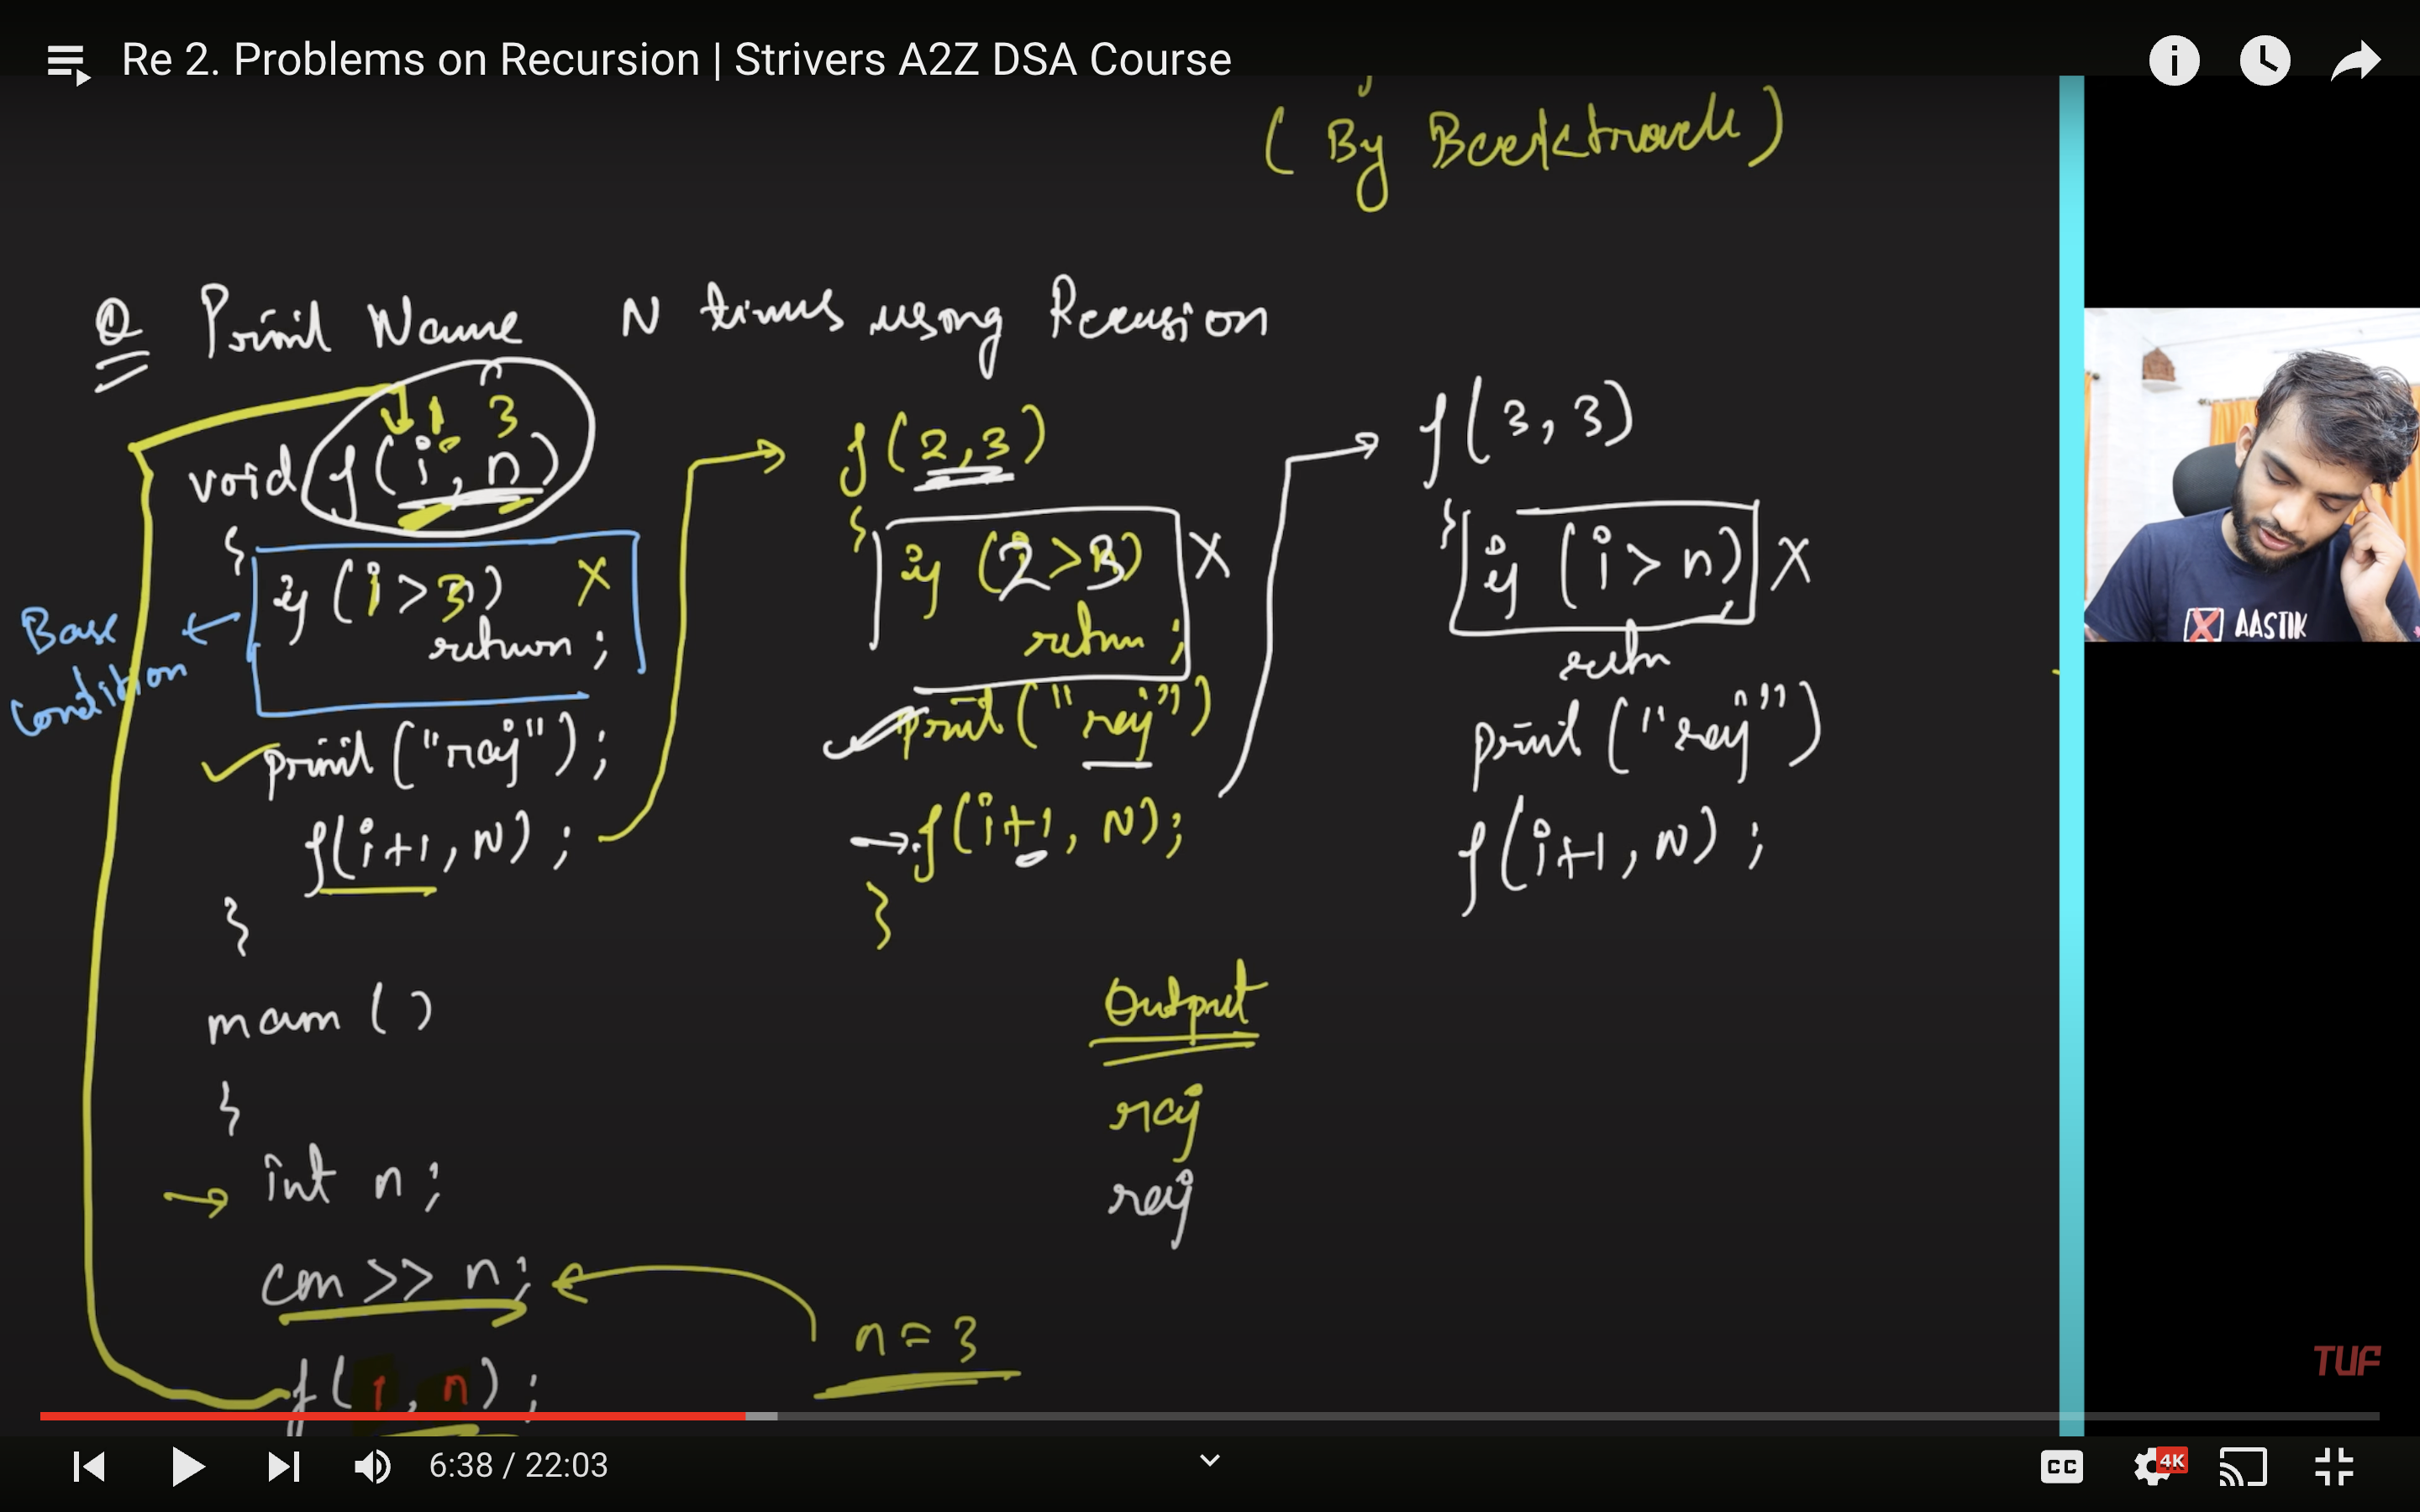 Re 2. Problems on Recursion | Strivers A2Z DSA Course
(By Backtrack)
Q Print Name N times using Recursion
1 n 3
void f(i, n)
{
if (i > 3) X
return;
Base
Condition
print("raj");
f(i+1, N);
}
main()
{
int n;
cin >> n;
f(1, n);
n = 3
f(2,3)
{
if (2>3) X
return;
print("raj")
f(i+1, N);
}
f(3,3)
{
if (i > n) X
retn
print("raj")
f(i+1, N);
Output
raj
raj
AASTIK
TUF
6:38 / 22:03
CC
4K